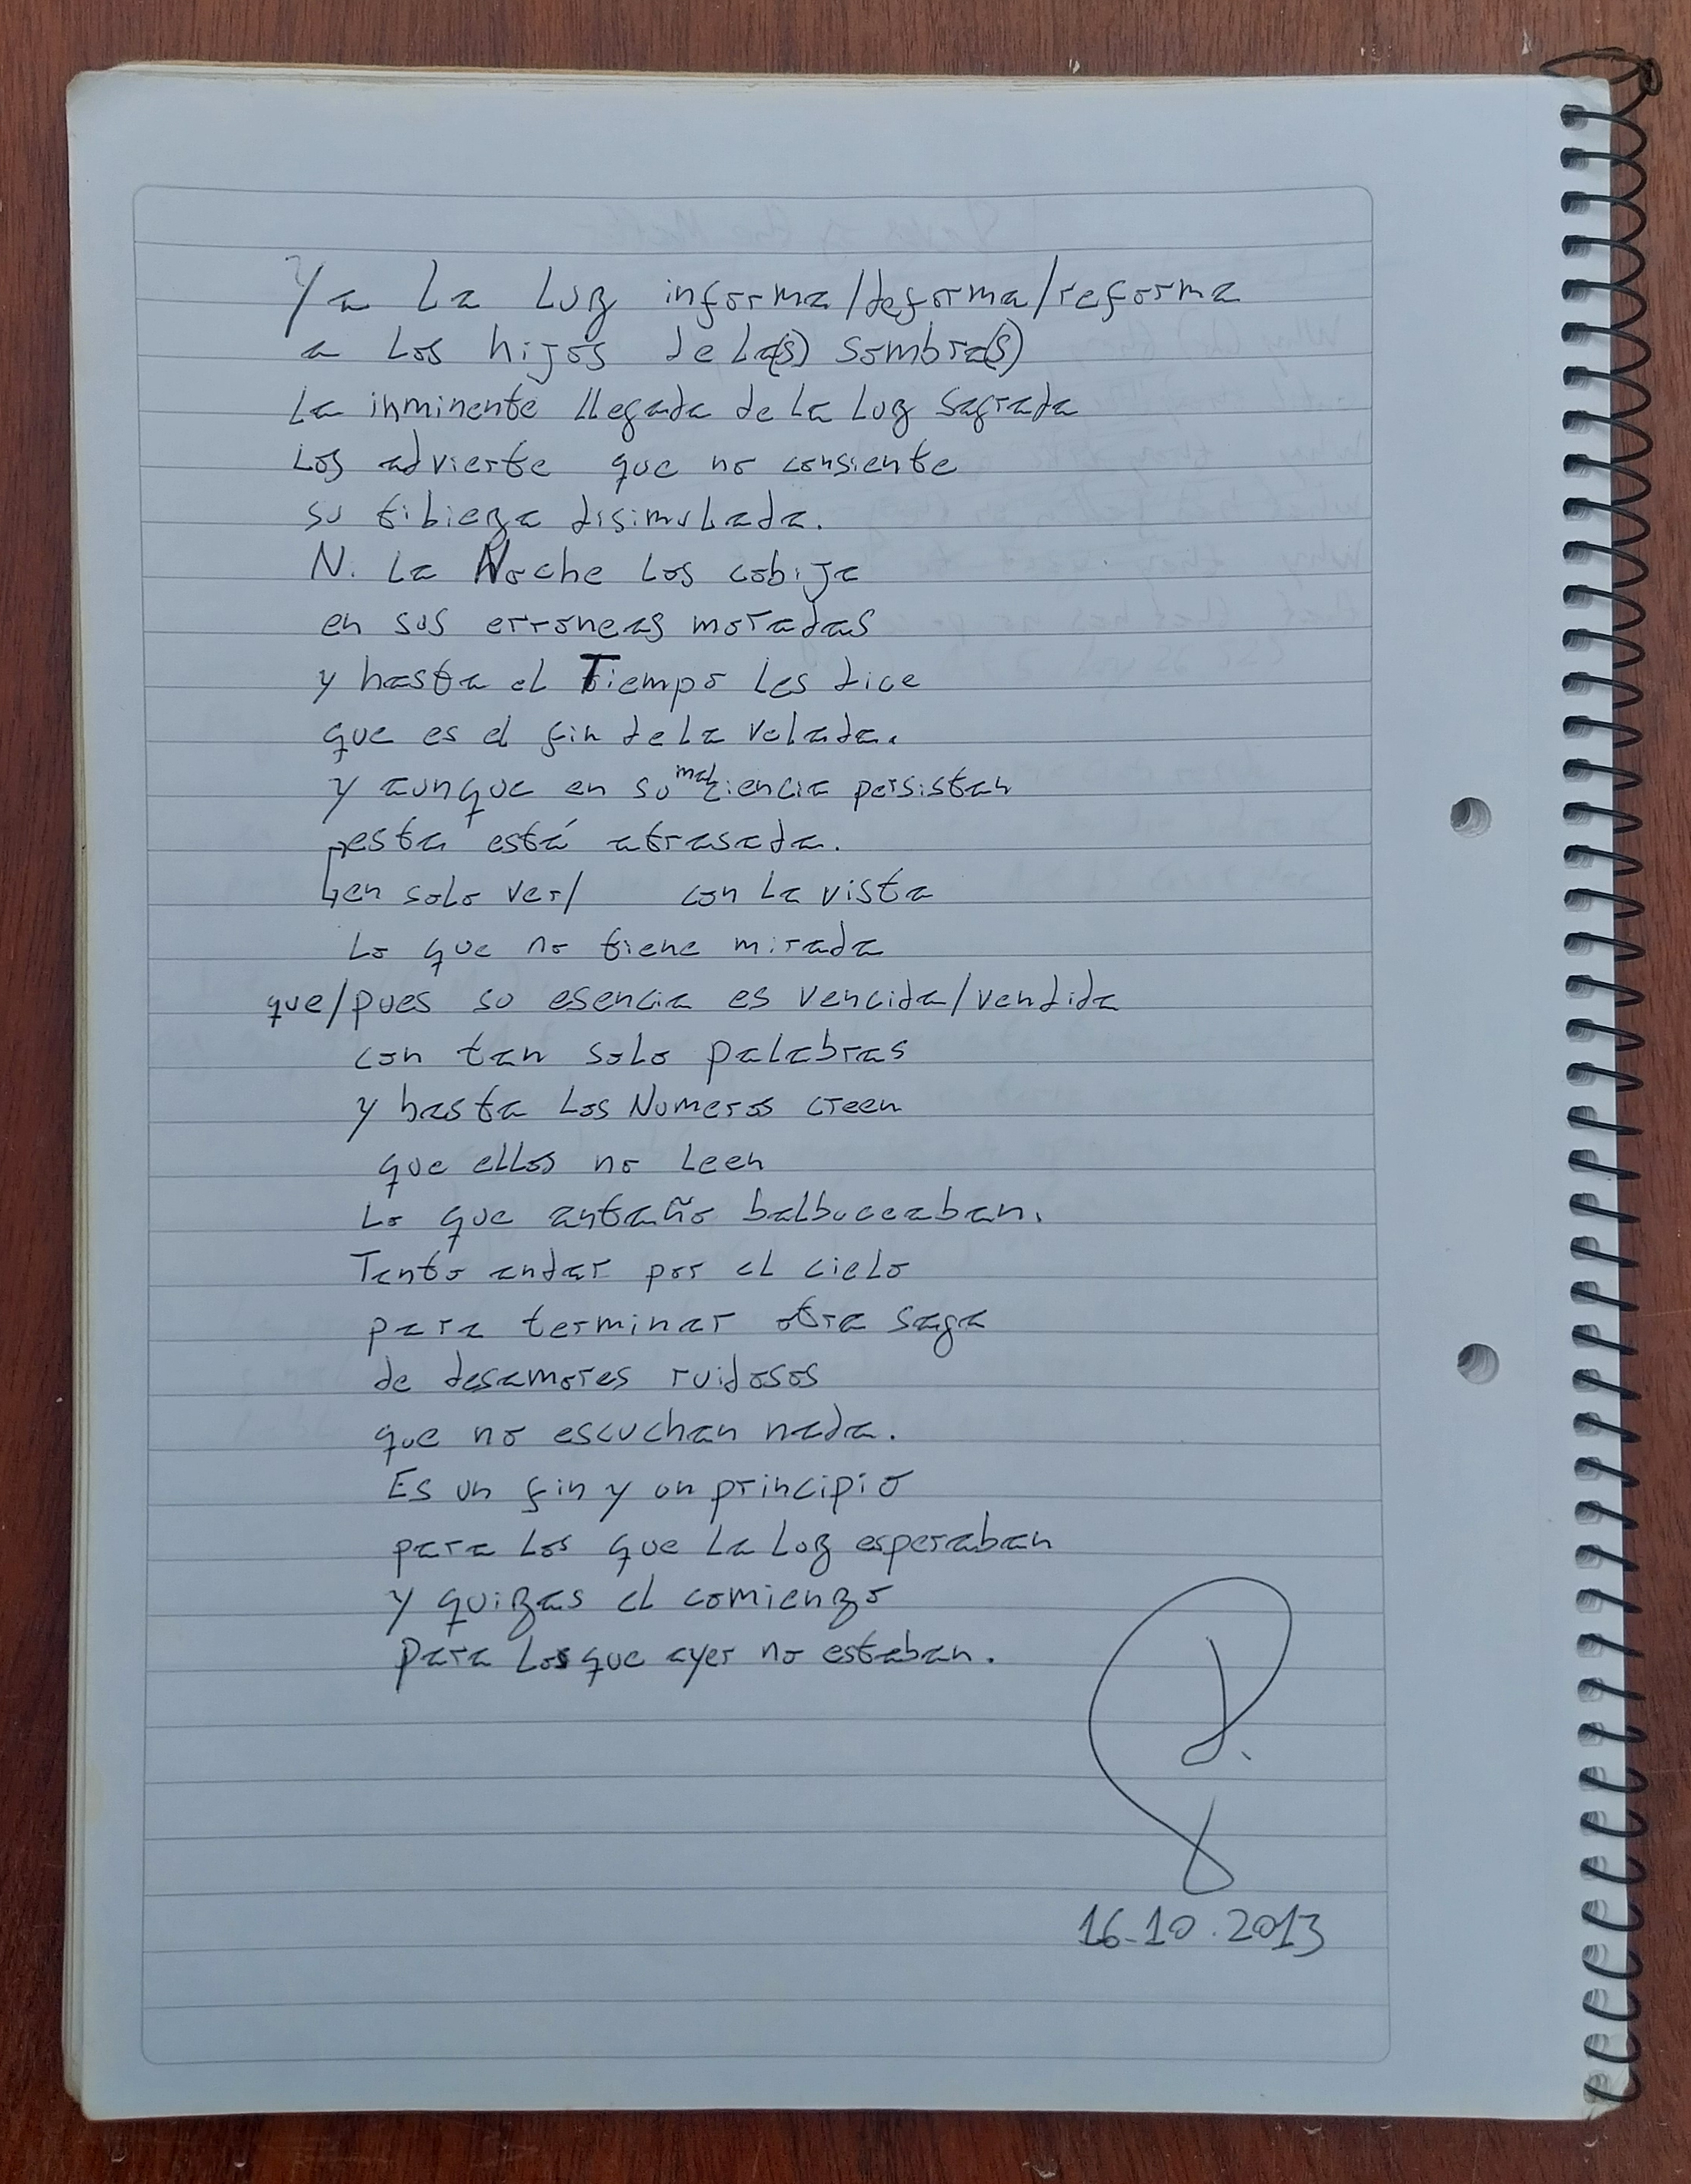 Ya La Luz informa/deforma/reforma
a Los hijos de la(s) sombra(s)
La inminente llegada de La Luz Sagrada
Los advierte que no consiente
su tibieza disimulada.
N. La Noche Los cobija
en sus erroneas moradas
y hasta el Tiempo Les dice
que es el fin de La velada.
y aunque en su mal ciencia persistan
esta está atrasada.
en solo ver/ con La vista
Lo que no tiene mirada
que/pues su esencia es vencida/vendida
con tan solo palabras
y hasta Los Numeros creen
que ellos no Leen
Lo que antaño balbuceaban.
Tanto andar por el cielo
para terminar otra saga
de desamores ruidosos
que no escuchan nada.
Es un fin y un principio
para Los que La Luz esperaban
y quizas el comienzo
para Los que ayer no estaban.
16.10.2013